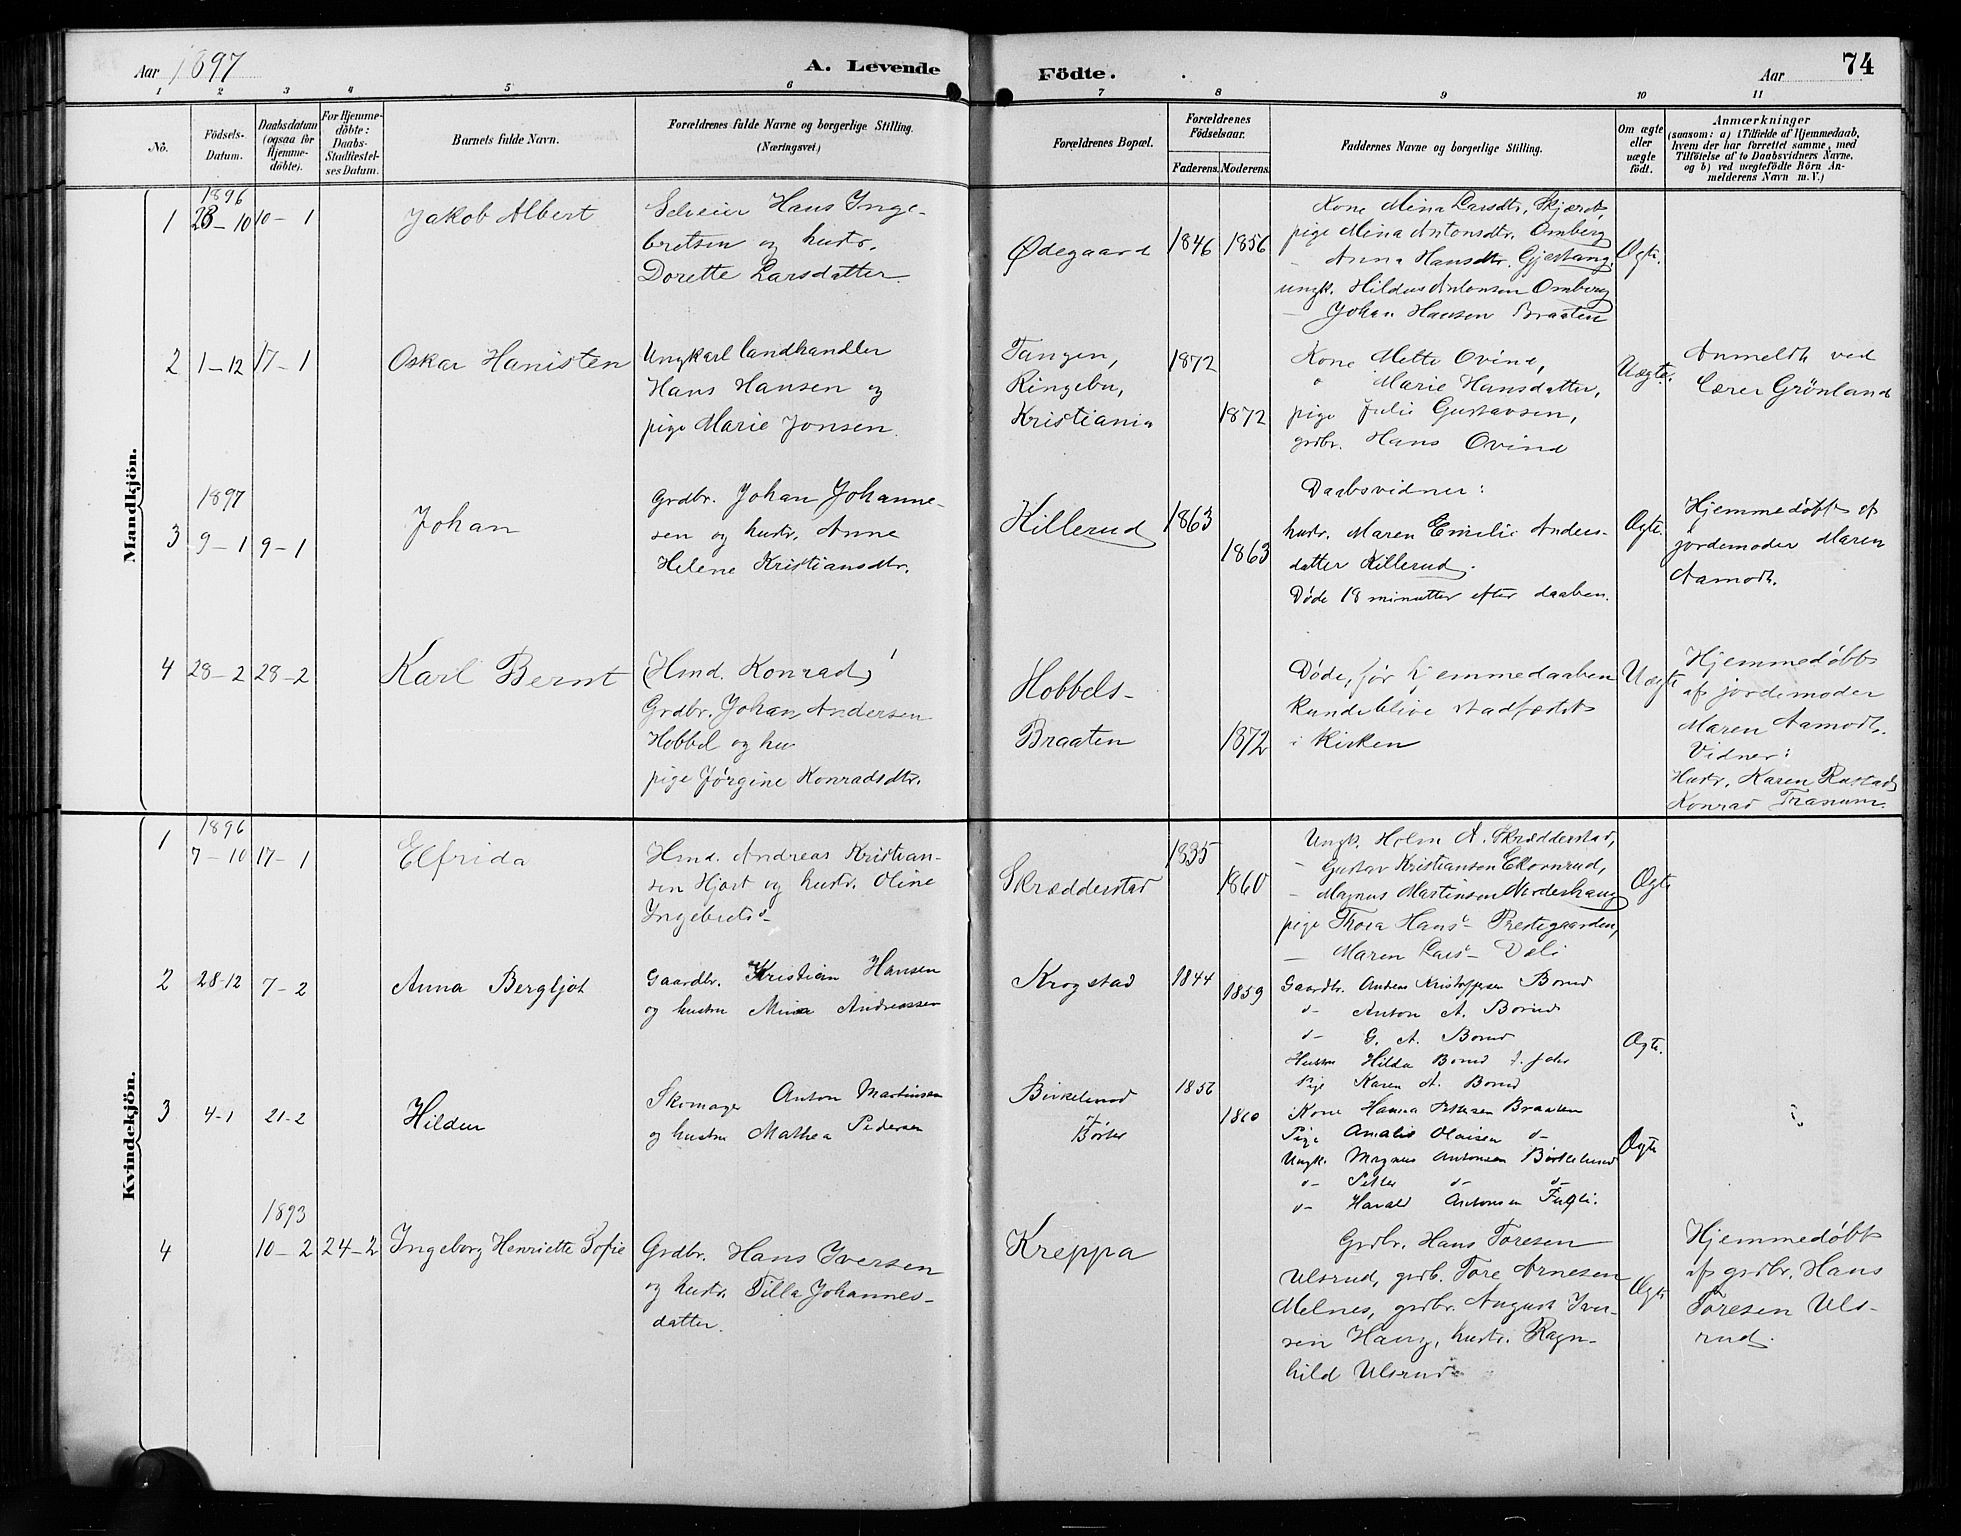 Aar 1897
A. Levende
Födte.
Aar
74
1 2 3 4 5 6 7 8 9 10 11
No.
Födsels-
Datum.
Daabsdatum
(ogsaa for
Hjemme-
döbte).
For Hjemme-
döbte:
Daabs-
Stadfæstel-
ses Datum.
Barnets fulde Navn.
Forældrenes fulde Navne og borgerlige Stilling.
(Næringsvei)
Forældrenes Bopæl.
Forældrenes
Födselsaar.
Faderens. Moderens.
Faddernes Navne og borgerlige Stilling.
Om ægte
eller
uægte
födt.
Anmærkninger
(saasom: a) i Tilfælde af Hjemmedaab,
hvem der har forrettet samme, med
Tilföielse af to Daabsvidners Navne,
og b) ved uægtefödte Börn An-
melderens Navn m. V.)
Mandkjön.
1896
1 23-10 10-1
Jakob Albert
Selveier Hans Inge-
bretsen og hustr.
Dorette Larsdatter
Ødegaard
1846 1856
Kone Mina Larsdtr.
pige Mina Antonsdtr. Omberg
— Anna Hansdtr. Gjestang
ungk. Hildus Antonsen Omberg
— Johan Hansen Braaten
Ægte.
2 1-12 17-1
Oskar Hanisten
Ungkarl landhandler
Hans Hansen og
pige Marie Jonsen.
Tangen,
Ringebu,
Kristiania
1872
1872
Kone Mette Ovind,
" Marie Hansdatter,
pige Julie Gustavsen,
grdbr. Hans Ovind
Uægte.
Anmeldt ved
Lærer Grönland
1897
3 9-1 9-1
Johan
Grdbr. Johan Johanne-
sen og hustr. Anne
Helene Kristiansdtr.
Killerud
1863
1863
Daabsvidner:
hustr. Maren Emilie Anders-
datter Killerud.
Døde 18 minutter efter daaben.
Ægte.
Hjemmedøbt af
jordemoder Maren
Aamodt.
4 28-2 28-2
Karl Bernt
(Hmd. Konrad)
Grdbr. Johan Andersen
Hobbel og hu
pige Jørgine Konradsdtr.
Hobbels-
Braaten
1872
Døde, før hjemmedaaben
kunde blive stadfæstet
i Kirken
Uægte
Hjemmedøbt
af jordemoder
Maren Aamodt.
Vidner:
Hustr. Karen Rustad
Konrad Tranum.
Kvindekjön.
1896
1 7-10 17-1
Elfrida
Hmd. Andreas Kristian-
sen Hjort og hustr. Oline
Ingebretsd-
Skrædderstad
1835
1860
Ungk. Holm A. Skrædderstad,
— Gustav Kristiansen Ekornrud,
— Magnus Martinsen Nordenhaug
pige Thora Hans- Prestegaarden,
— Maren Lars- Dali
Ægte
2 28-12 7-2
Anna Bergljot
Gaardbr. Kristian Hansen
og hustru Mina Andreassen
Krogstad
1844
1859
Gaardbr. Anders Kristoffersen Borud
d- Anton A. Borud
d- G. A. Borud
Hustru Hilda Borud
Pige Karen A. Borud
Ægte.
3 4-1 21-2
Hildur
Skomager Anton Martinsen
og hustru Mathea Pedersen
Birkelund
1856
1860
Kone Hanna Pettersen Braaten
Pige Amalie Olaisen d-
Ungk. Magnus Antonsen Birkelund
d- Petter d- d-
d- Harald Antonsen Fugli.
Ægte
1893
4 10-2 24-2
Ingeborg Henriette Sofie
Grdbr. Hans Iversen
og hustr. Tilla Johannes-
datter.
Kreppa
Grdbr. Hans Toresen
Ulsrud, grdb. Tore Arnesen
Melnes, grdbr. August Iver-
sen Haug, hustr. Ragn-
hild Ulsrud
Ægte
Hjemmedøbt
af grdbr. Hans
Toresen Uls-
rud.